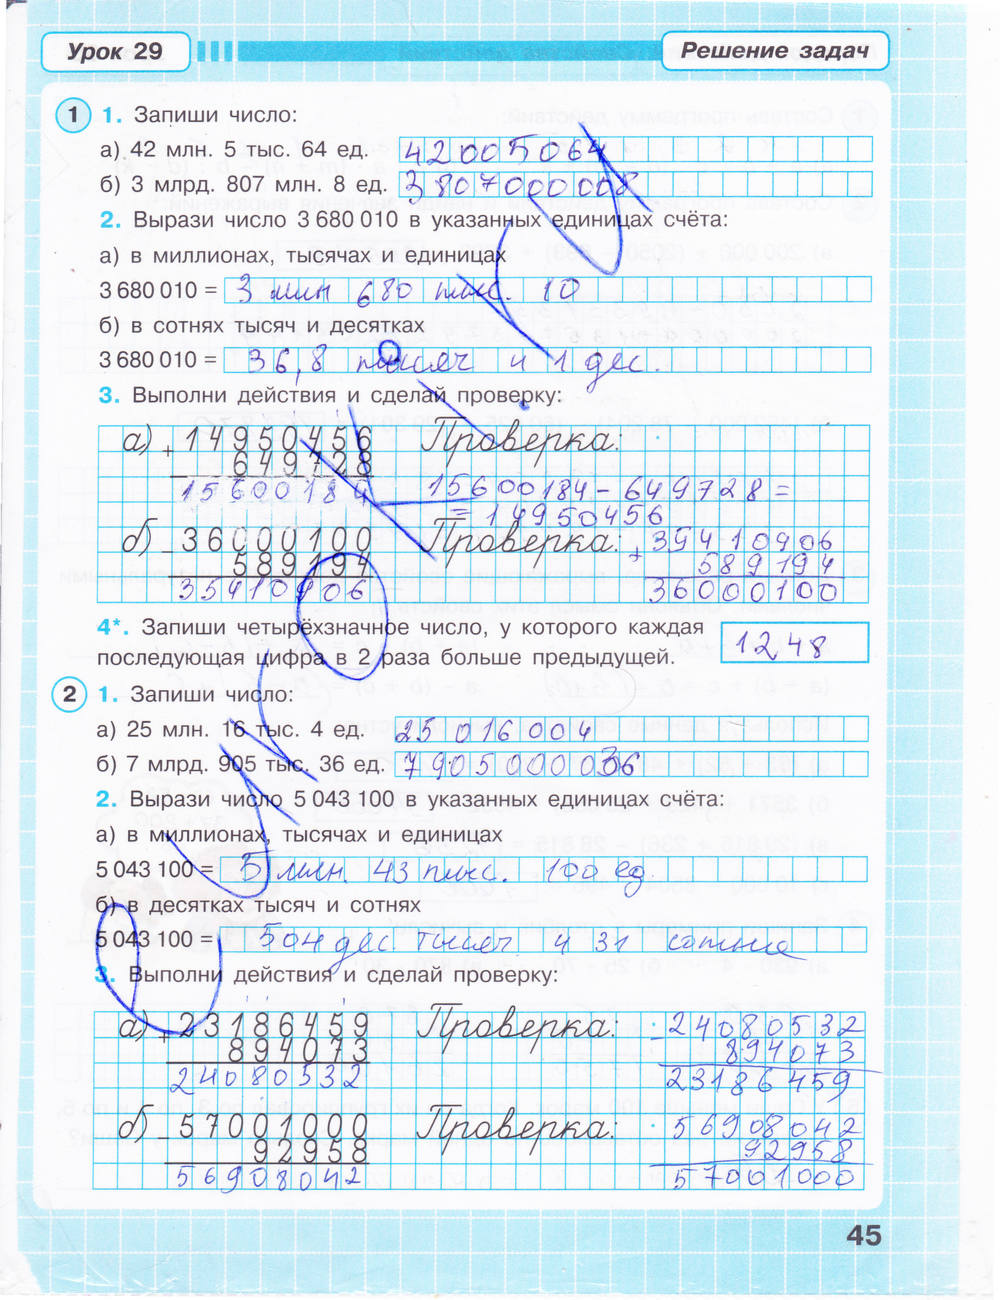 Урок 29
Решение задач
1 1. Запиши число:
а) 42 млн. 5 тыс. 64 ед. 42005064
б) 3 млрд. 807 млн. 8 ед. 3807000008
2. Вырази число 3 680 010 в указанных единицах счёта:
а) в миллионах, тысячах и единицах
3 680 010 = 3 млн 680 тыс. 10
б) в сотнях тысяч и десятках
3 680 010 = 36,8 тысяч и 1 дес.
3. Выполни действия и сделай проверку:
а) + 14950456 Проверка:
649728
15600184 15600184 - 649728 =
= 14950456
б) - 36000100 Проверка: + 35410906
589194 589194
35410906 36000100
4*. Запиши четырёхзначное число, у которого каждая
последующая цифра в 2 раза больше предыдущей. 1248
2 1. Запиши число:
а) 25 млн. 16 тыс. 4 ед. 25 016 004
б) 7 млрд. 905 тыс. 36 ед.
2. Вырази число 5 043 100 в указанных единицах счёта:
а) в миллионах, тысячах и единицах
5 043 100 = 5 млн. 43 тыс. 100 ед
б) в десятках тысяч и сотнях
5 043 100 = 504 дес тысяч и 31 сотня
3. Выполни действия и сделай проверку:
а) + 23186459 Проверка: - 24080532
894073 894073
24080532 23186459
б) - 57001000 Проверка: 56908042
92958 92958
56908042 57001000
45